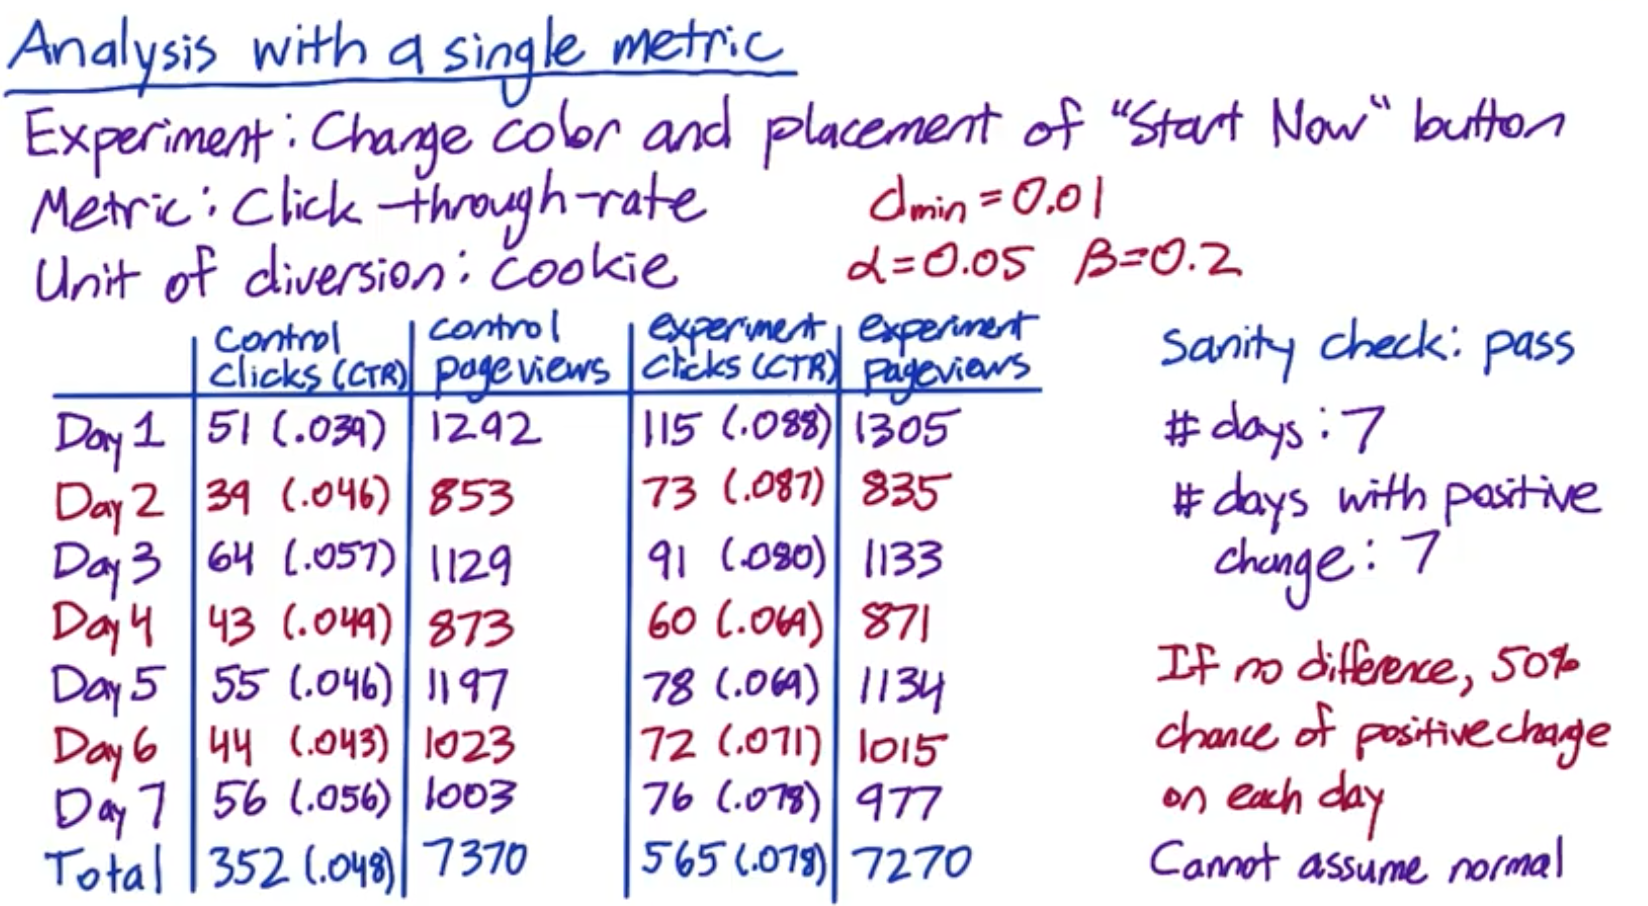 Analysis with a single metric
Experiment: Change color and placement of "Start Now" button
Metric: Click-through-rate
dmin = 0.01
Unit of diversion: cookie
α=0.05 β=0.2
control clicks (CTR) control pageviews experiment clicks (CTR) experiment pageviews
Day 1 51 (.039) 1292 115 (.088) 1305
Day 2 39 (.046) 853 73 (.087) 835
Day 3 64 (.057) 1129 91 (.080) 1133
Day 4 43 (.049) 873 60 (.069) 871
Day 5 55 (.046) 1197 78 (.069) 1134
Day 6 44 (.043) 1023 72 (.071) 1015
Day 7 56 (.056) 1003 76 (.078) 977
Total 352 (.048) 7370 565 (.078) 7270
Sanity check: pass
# days: 7
# days with positive
change: 7
If no difference, 50%
chance of positive change
on each day
Cannot assume normal